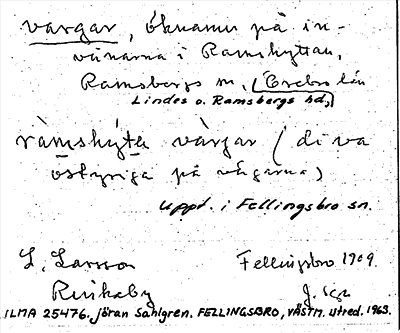 vargar, öknamn på in-
vånarna i Ramshyttan,
Ramsbergs sn, (Örebro län
Lindes o. Ramsbergs hd,)
ràmshỳta vàrgar (di va
ostyriga på vägarna)
uppt. i Fellingsbro sn.
L. Larsson Fellingsbro 1909.
Rinkaby J. Sgn
ILMA 25476. Jöran Sahlgren. FELLINGSBRO, VÄSTM. Utred. 1963.